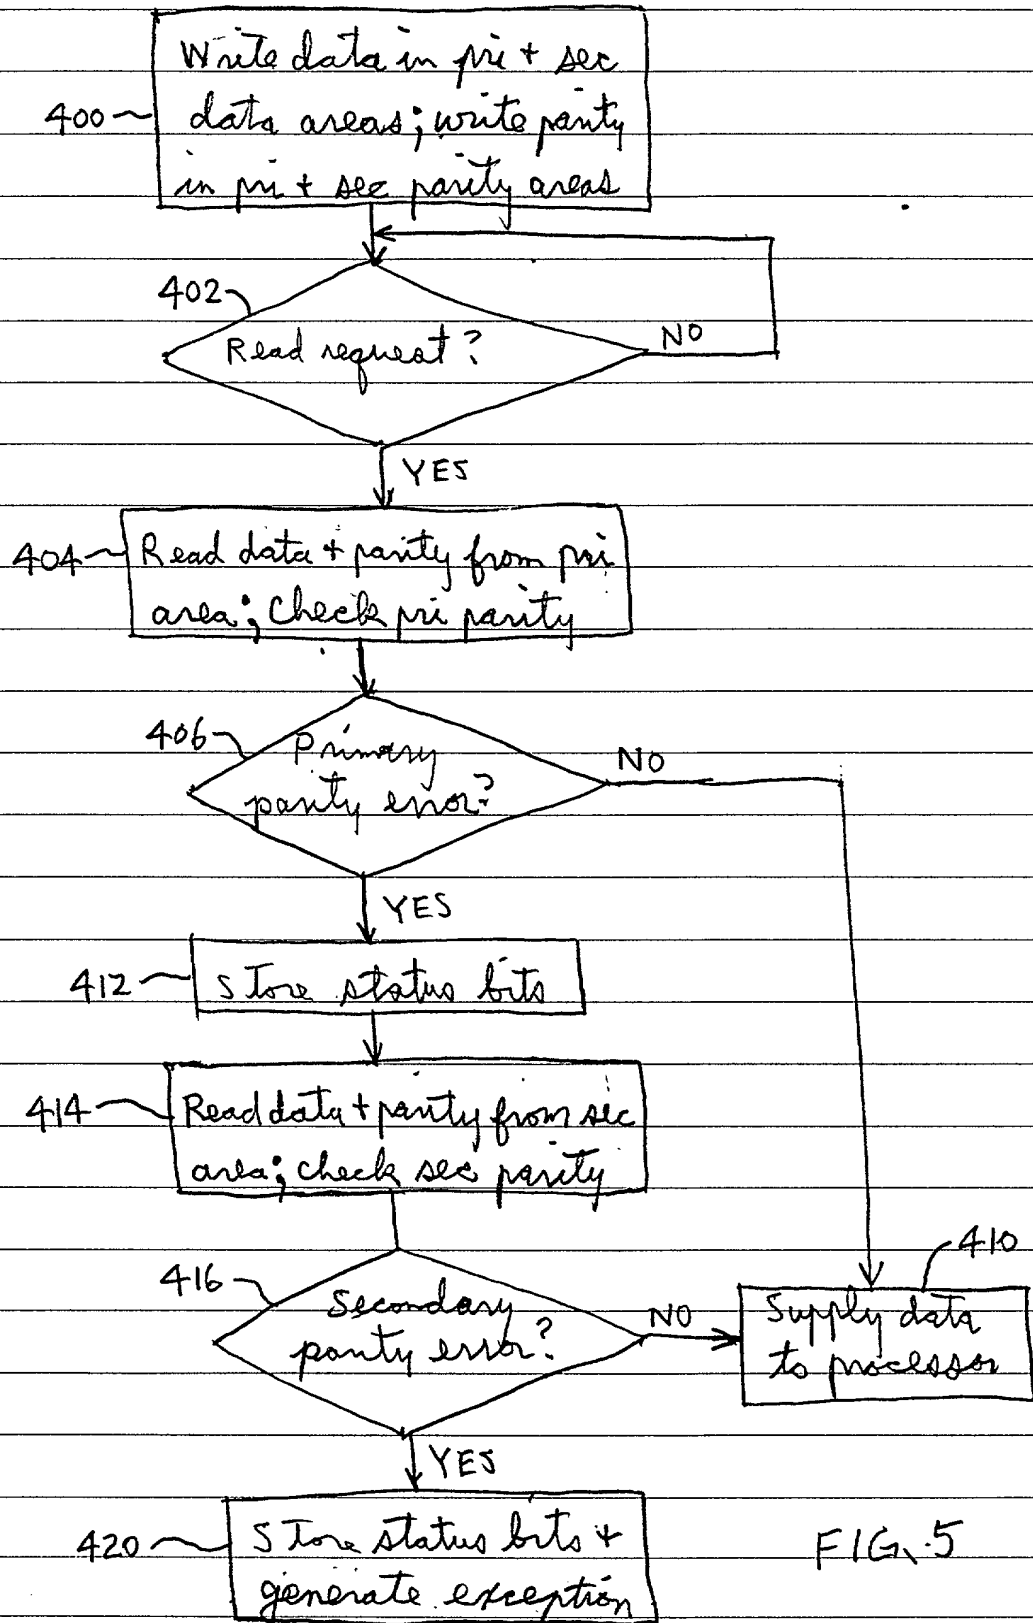 Write data in pri + sec
400
data areas; write parity
in pri + sec parity areas
402
Read request?
NO
YES
404
Read data + parity from pri
area; Check pri parity
406
Primary
parity error?
NO
YES
412
Store status bits
414
Read data + parity from sec
area; check sec parity
410
416
Secondary
parity error?
NO
Supply data
to processor
YES
420
Store status bits +
generate exception
FIG. 5